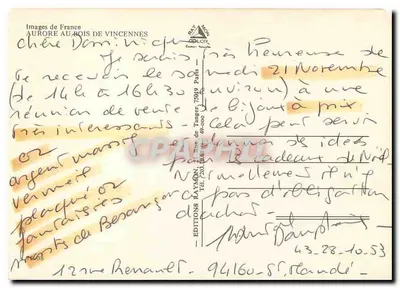 Images de France
AURORE AU BOIS DE VINCENNES
Chère Dominique
Je serais très heureuse de
te recevoir le samedi 21 Novembre
(de 14h à 16h30 environ) à une
réunion de vente de bijoux à prix
très intéressants. Cela peut servir
or de idées
argent massif cadeaux de Noël
vermeil Normalement il n'y
plaqué or pas d'obligation
fantaisies d'achat
de Besançon
43-28-10-53
12 rue Renault - 94160 - St Mandé -
EDITIONS RAYMON
CPARAMA